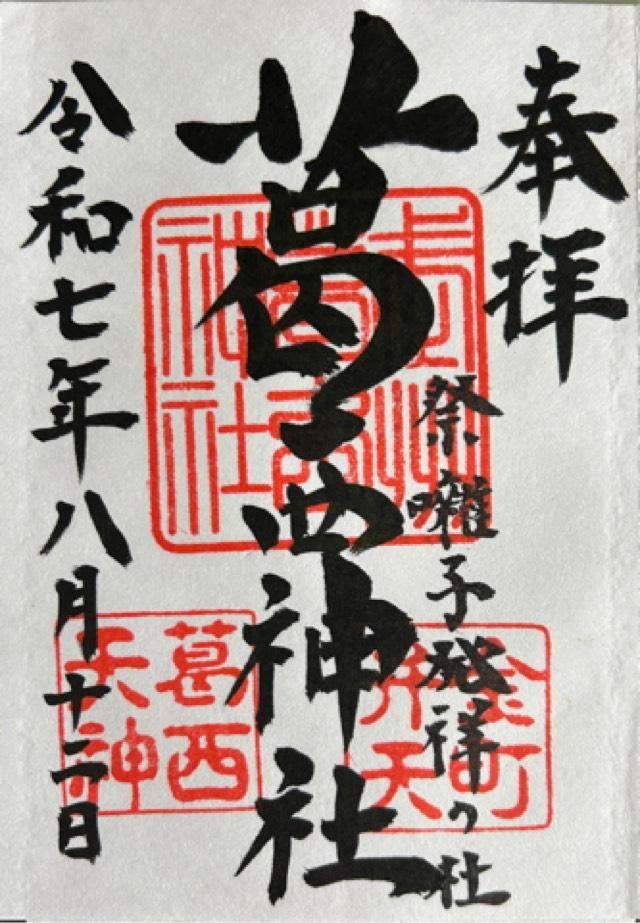 奉拝
祭囃子発祥の社
葛西神社
令和七年八月十二日
金町
弁天
葛西
天神